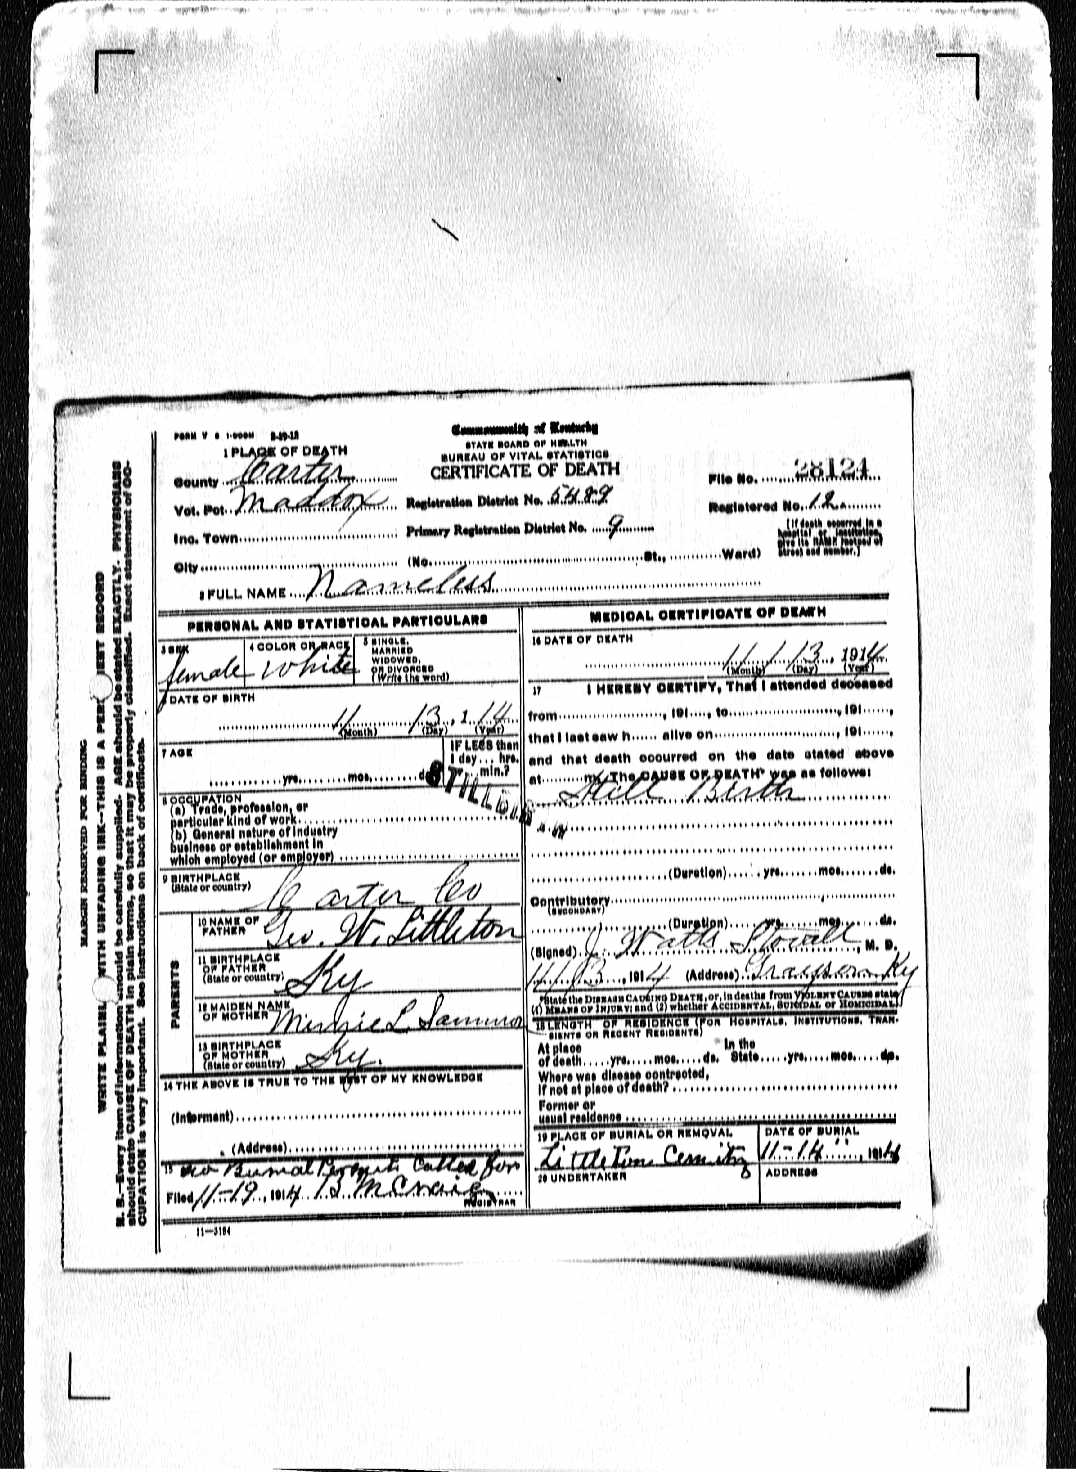 FORM V S 1-500M 8-19-13
Commonwealth of Kentucky
STATE BOARD OF HEALTH
BUREAU OF VITAL STATISTICS
CERTIFICATE OF DEATH
1 PLACE OF DEATH
County Carter
Vot. Pct. Maddox
Inc. Town
City
Registration District No. 5489
Primary Registration District No. 9
(No. St., Ward)
File No. 28124
Registered No. 12
[If death occurred in a
hospital or institution,
give its NAME instead of
street and number.]
2 FULL NAME Nameless
PERSONAL AND STATISTICAL PARTICULARS
3 SEX
female
4 COLOR OR RACE
White
5 SINGLE,
MARRIED
WIDOWED,
OR DIVORCED
(Write the word)
6 DATE OF BIRTH
11 13, 1 14
(Month) (Day) (Year)
7 AGE
yrs. mos. ds.
IF LESS than
1 day... hrs.
or... min.?
STILLBORN
8 OCCUPATION
(a) Trade, profession, or
particular kind of work
(b) General nature of industry
business or establishment in
which employed (or employer)
9 BIRTHPLACE
(State or country)
Carter Co
PARENTS
10 NAME OF
FATHER
Geo. W. Littleton
11 BIRTHPLACE
OF FATHER
(State or country)
Ky
12 MAIDEN NAME
OF MOTHER
Minnie L.
13 BIRTHPLACE
OF MOTHER
(State or country)
Ky.
14 THE ABOVE IS TRUE TO THE BEST OF MY KNOWLEDGE
(Informant)
(Address)
15
no Burial Permit Called for
Filed 11-19, 1914 B McCraig
REGISTRAR
11—3184
MEDICAL CERTIFICATE OF DEATH
16 DATE OF DEATH
11 / 13, 1914
(Month) (Day) (Year)
17 I HEREBY CERTIFY, That I attended deceased
from , 191 , to , 191 ,
that I last saw h alive on , 191 ,
and that death occurred on the date stated above
at m. The CAUSE OF DEATH* was as follows:
Still Birth
(Duration) yrs. mos. ds.
Contributory
(SECONDARY)
(Duration) yrs. mos. ds.
(Signed) J. Watts Stovall, M. D.
11/13, 1914 (Address) Grayson Ky
*State the DISEASE CAUSING DEATH, or, in deaths from VIOLENT CAUSES state
(1) MEANS OF INJURY; and (2) whether ACCIDENTAL, SUICIDAL OR HOMICIDAL.
18 LENGTH OF RESIDENCE (FOR HOSPITALS, INSTITUTIONS, TRAN-
SIENTS OR RECENT RESIDENTS)
At place In the
of death yrs. mos. ds. State yrs. mos. ds.
Where was disease contracted,
If not at place of death?
Former or
usual residence
19 PLACE OF BURIAL OR REMOVAL
Littleton
DATE OF BURIAL
11-14", 1914
20 UNDERTAKER
ADDRESS
MARGIN RESERVED FOR BINDING
WRITE PLAINLY WITH UNFADING INK—THIS IS A PERMANENT RECORD
N. B.—Every item of information should be carefully supplied. AGE should be stated EXACTLY. PHYSICIANS
should state CAUSE OF DEATH in plain terms, so that it may be properly classified. Exact statement of OC-
CUPATION is very important. See instructions on back of certificate.